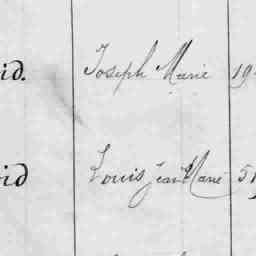 id. Joseph Marie 19
id Louis Jean Marie 51